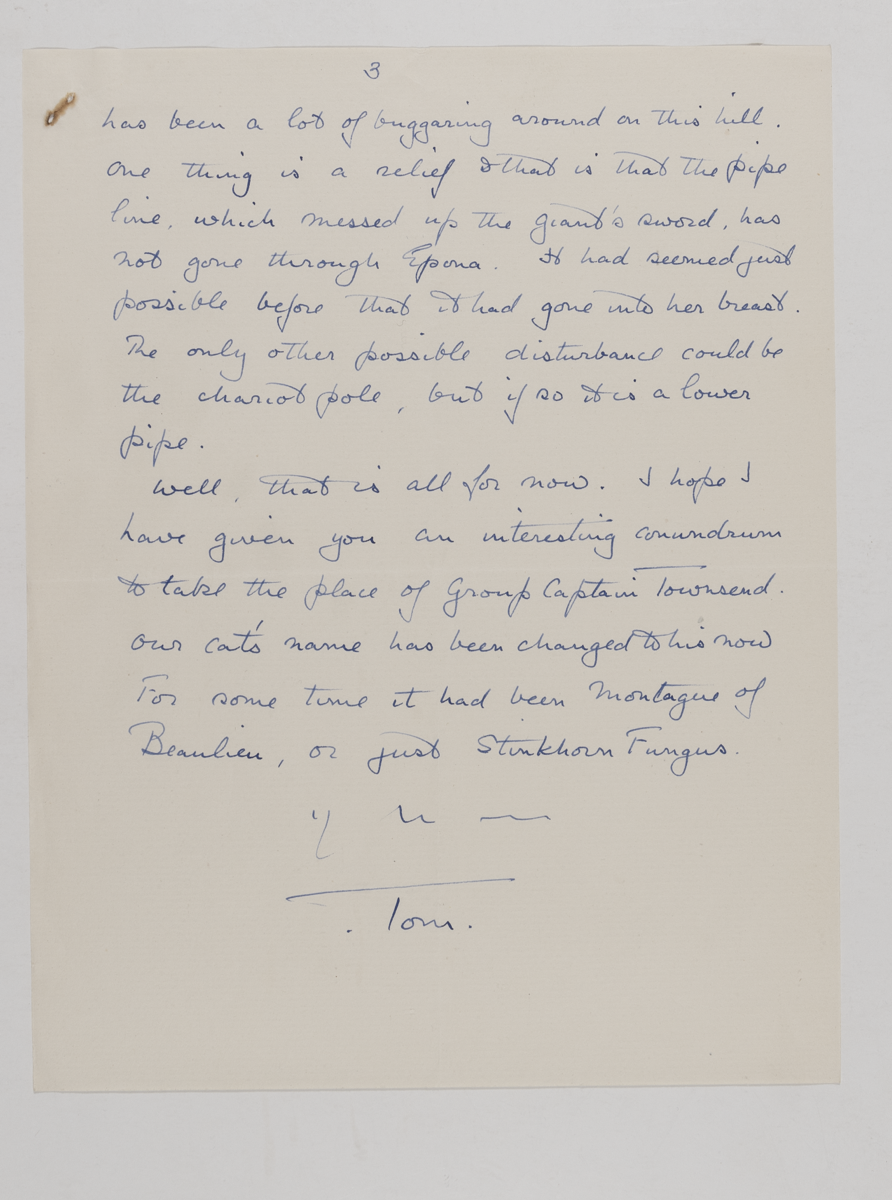 3
has been a lot of buggaring around on this hill.
One thing is a relief & that is that the pipe
line, which messed up the giant's sword, has
not gone through Epona. It had seemed just
possible before that it had gone into her breast.
The only other possible disturbance could be
the chariot pole, but if so it is a lower
pipe.
Well, that is all for now. I hope I
have given you an interesting conundrum
to take the place of Group Captain Townsend.
Our cat's name has been changed to his now
For some time it had been Montague of
Beaulieu, or just Stinkhorn Fungus.
Tom.